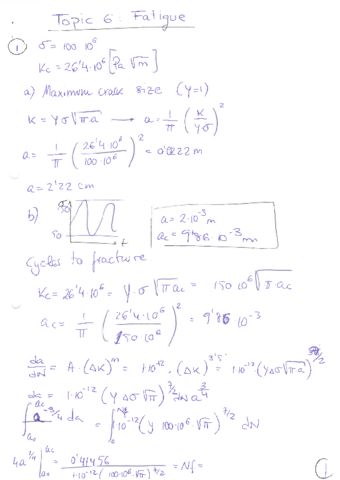 Topic 6: Fatigue
① σ = 100 10⁶
Kc = 26'4·10⁶ [Pa √m]
a) Maximum crack size (Y=1)
K = Yσ√πa → a = 1/π (K/Yσ)²
a = 1/π (26'4·10⁶/100·10⁶)² = 0'0222 m
a = 2'22 cm
b)
50
t
a = 2·10⁻³ m
ac = 9'86 10⁻³ m
Cycles to fracture
Kc = 26'4·10⁶ = Y·σ √πac = 150 10⁶ √π·ac
ac = 1/π (26'4·10⁶/150 10⁶)² = 9'86·10⁻³
da/dN = A·(ΔK)ᵐ = 1·10⁻¹²·(ΔK)³'⁵ = 1·10⁻¹² (YΔσ√πa)
da = 1·10⁻¹² (YΔσ√π)^7/2 dN a^7/4
∫ₐ₀^ac a^-7/4 da = ∫₀^Nf 10⁻¹² (Y 100·10⁶·√π)^7/2 dN
= Nf =
1